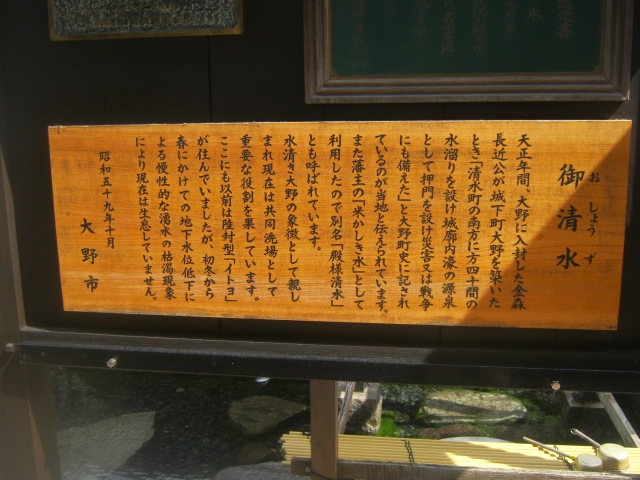 御清水
おしょうず
天正年間、大野に入封した金森
長近公が城下町大野を築いた
とき「清水町の南方に方四十間の
水溜りを設け城廓内濠の源泉
として押門を設け災害又は戦争
にも備えた」と大野町史に記され
ているのが当地と伝えられています。
また藩主の「米かしき水」として
利用したので別名「殿様清水」
とも呼ばれています。
水清き大野の象徴として親し
まれ現在は共同洗場として
重要な役割を果しています。
ここにも以前は陸封型「イトヨ」
が住んでいましたが、初冬から
春にかけての地下水位低下に
よる慢性的な湧水の枯渇現象
により現在は生息していません。
昭和五十九年十月
大野市